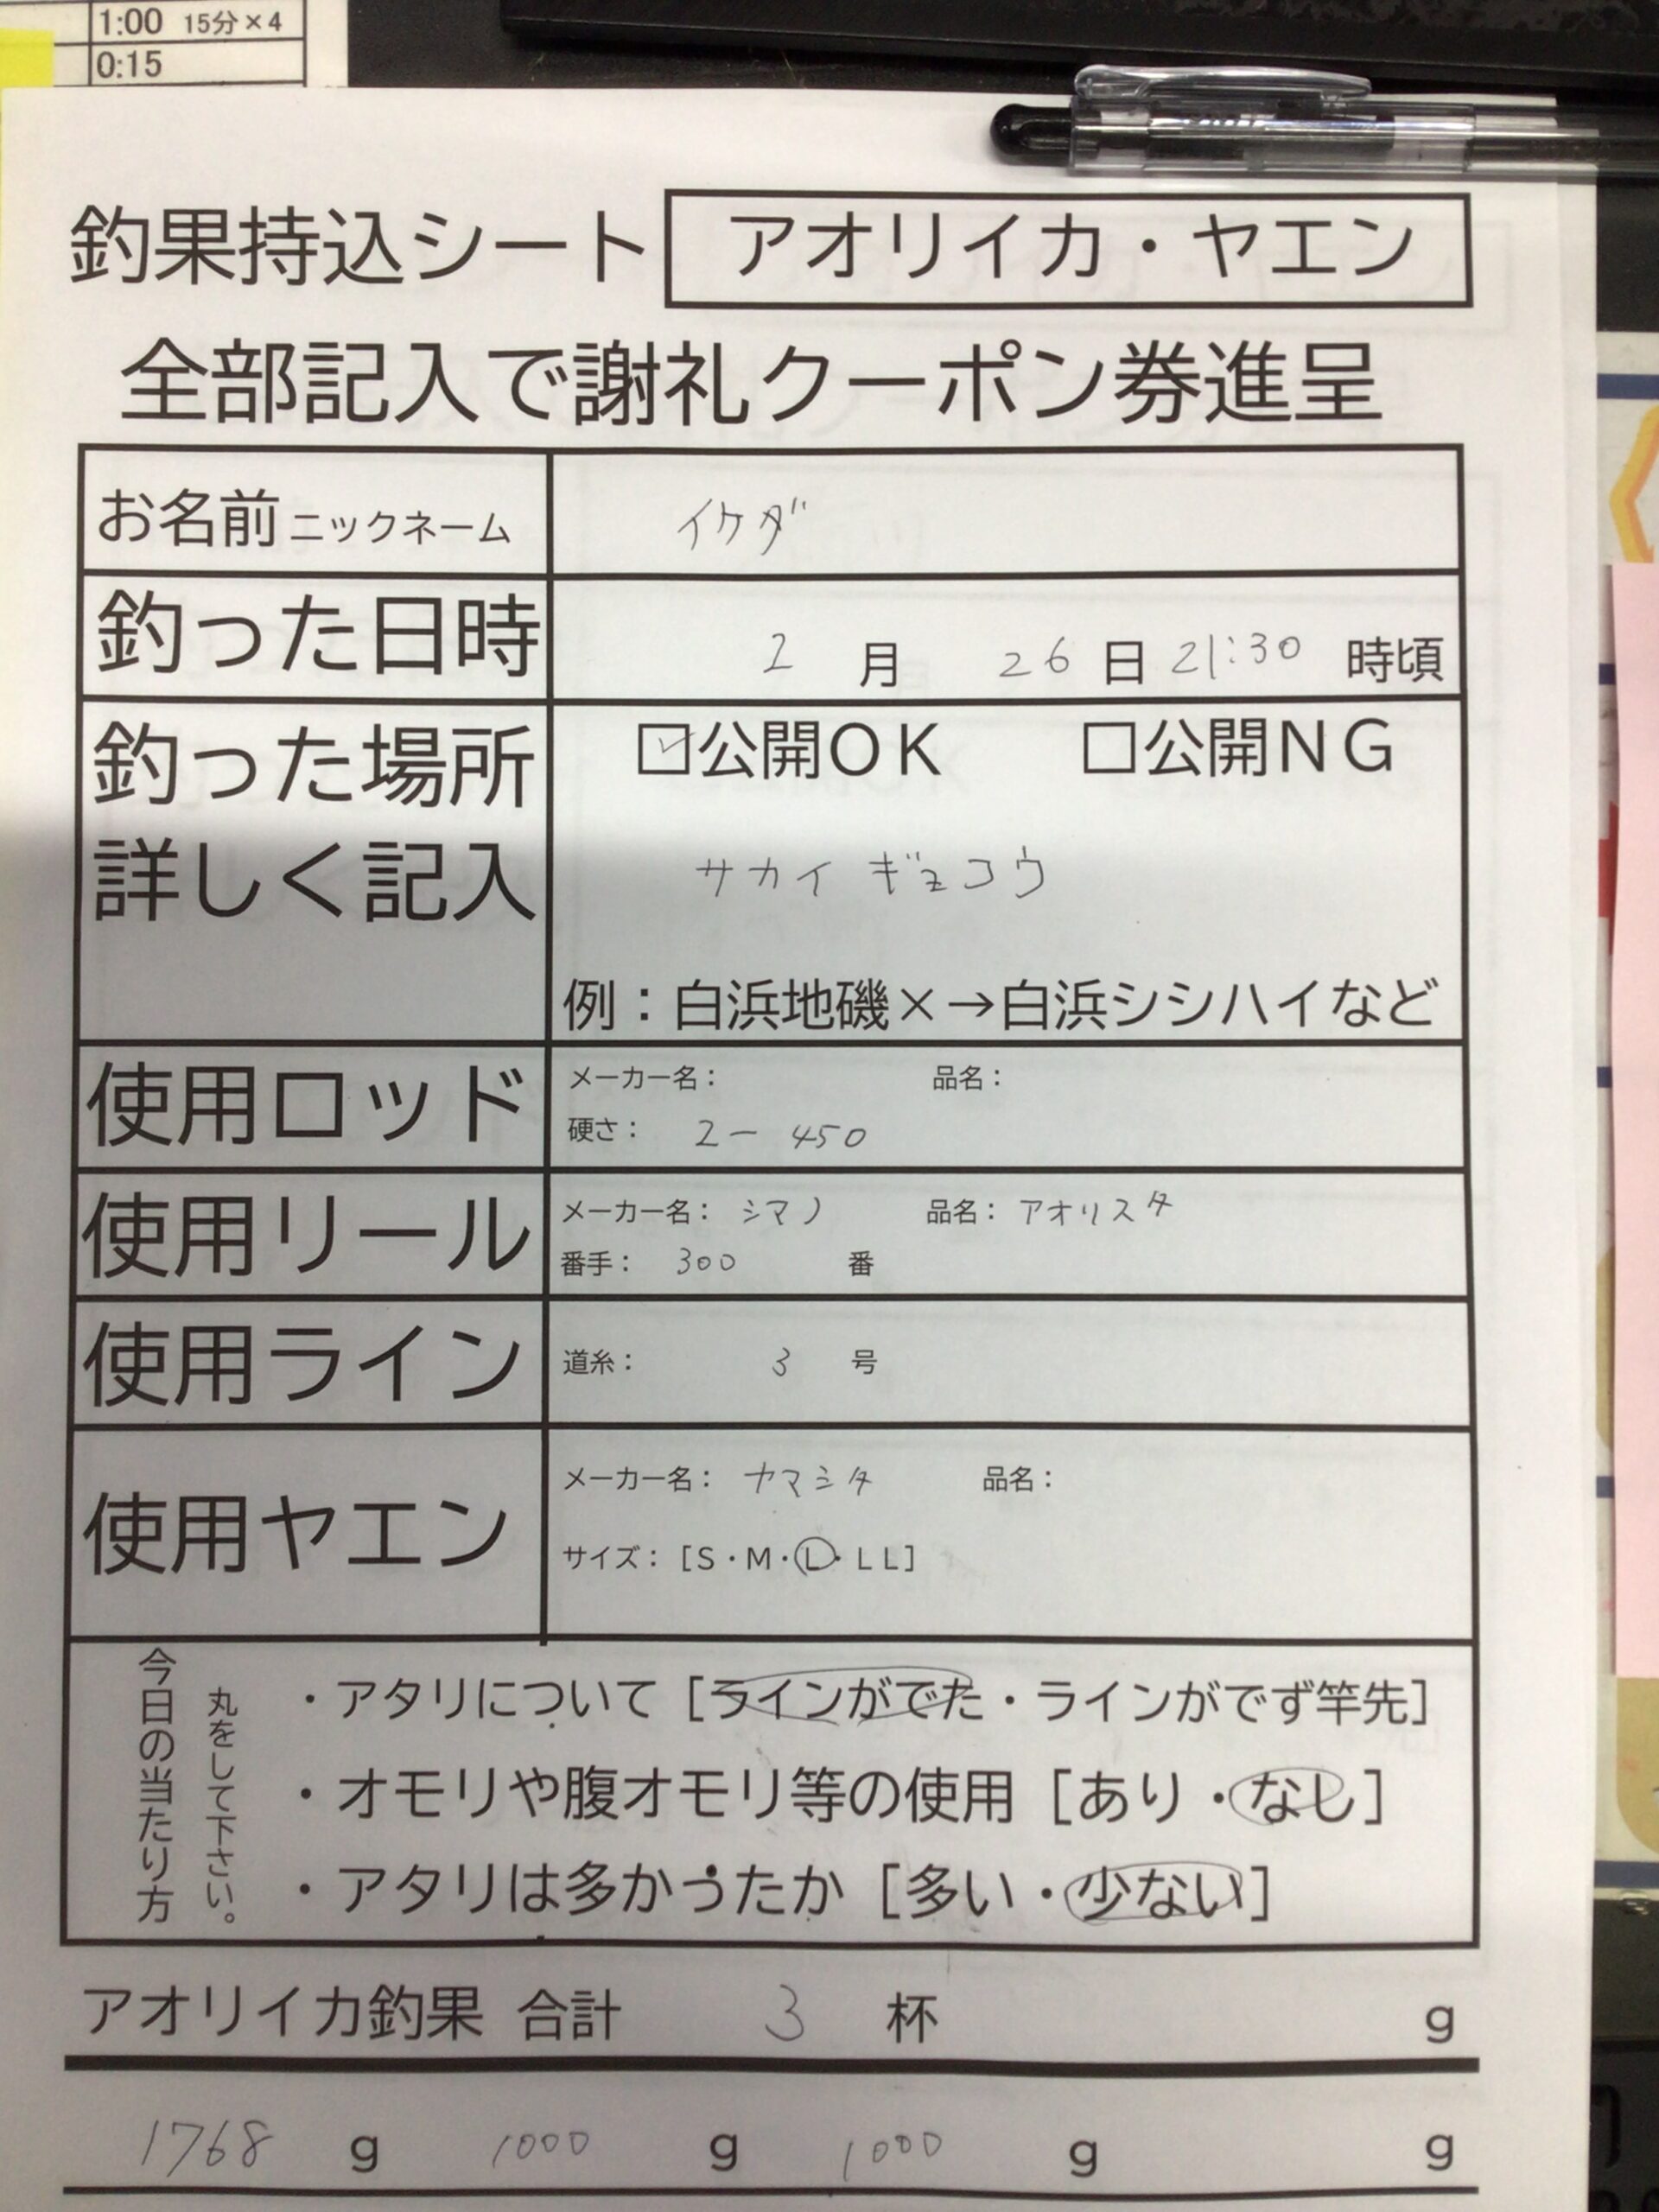 1:00 15分×4
0:15
釣果持込シート アオリイカ・ヤエン
全部記入で謝礼クーポン券進呈
お名前 ニックネーム イケダ
釣った日時 2 月 26 日 21:30 時頃
釣った場所 ☑公開OK □公開NG
詳しく記入 サカイ ギョコウ
例：白浜地磯×→白浜シシハイなど
使用ロッド メーカー名： 品名：
硬さ： 2－450
使用リール メーカー名： シマノ 品名： アオリスタ
番手： 300 番
使用ライン 道糸： 3 号
使用ヤエン メーカー名： ヤマシタ 品名：
サイズ：[S・M・L・LL]
今日の当たり方
丸をして下さい。
・アタリについて [ラインがでた・ラインがでず竿先]
・オモリや腹オモリ等の使用 [あり・なし]
・アタリは多かうたか [多い・少ない]
アオリイカ釣果 合計 3 杯 g
1768 g 1000 g 1000 g g